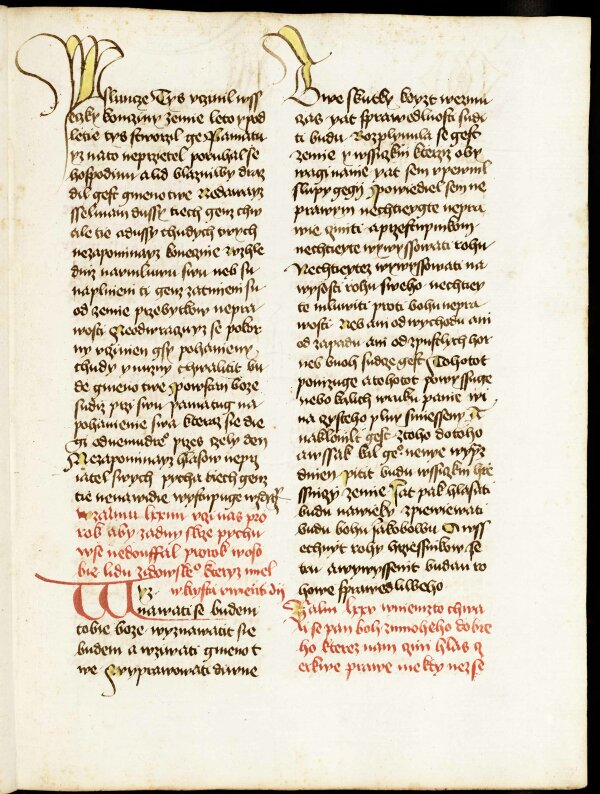 slunge Tys vczinil wss
eczky konyiny zemie leto y pod
letie tys stworzil ge Pamatu
yz nato neprzietel poruhal se
hospodinu a lid blazniwy draz
dil gest gmeno twe Nedaway
sselmam dussy tiech genz chw
ale tie adussy chudych twych
nezapominay koneczie wzhle
dniz namluwu swu neb su
naplnieni ti genz zatmieni su
od zemie przebytkow nepra
wosti Neodwraczuy se pokor
ny vczinen gsy pohanieny
chudy y nuzny chwaliti bu
de gmeno twe Powstan boze
sudiz przi swu pamatug na
pohanienie swa kteraz sie die
gi odnemudre przes czely den
Nezapominay hlasow neprz
iatel swych pycha tiech genz
tie nenawidie wystupuge wzdy
w zalmu lxxiiii vczi nas pro
rok aby zadny skrze pychu
wse nedouffal prorok woso
bie lidu zidowskeho kteryz miel
w kysti vwesti dij
Wyz
nawati se budem
tobie boze wyznawati sie
budem a wzywati gmeno t
we Wyprawowati diwne
Twe skutky kdyzt wezmu
czas yat sprawedlnosti sudi
ti budu Rozplynula se gest
zemie y wssiczkni kterzy oby
wagi nanie yat sem vpewnil
slupy gegij Powiediel sem ne
prawym nechtieygte nepra
wie cziniti a przestupnikom
nechtieyte wywyssowati rohu
Nechtieytez wywyssowati na
wysost rohu sweho nechtiey
te mluwiti proti bohu nepra
wosti Neb ani od wychodu ani
od zapadu ani od zpustlych hor
neb buoh sudze gest Tohotot
ponizuge atohotot powyssuge
nebo kalich wruku panie wi
na czysteho plny smiesseny A
naklonilt gest ztoho dotoho
awssak kal geho nenye wypz
dnien piti budu wssiczkni hrie
ssniczy zemie Jat pak hlasati
budu nawieky zpiewiewati
budu bohu jakobowu A wss
echnyt rohy hrziessnikow ze
tru awywyssenit budau ro
howe sprawedliweho
Zalm lxxv wniemzto chwa
li se pan boh zmnoheho dobre
ho kterez nam czini hlas cz
erkwe prawe niekty nezse